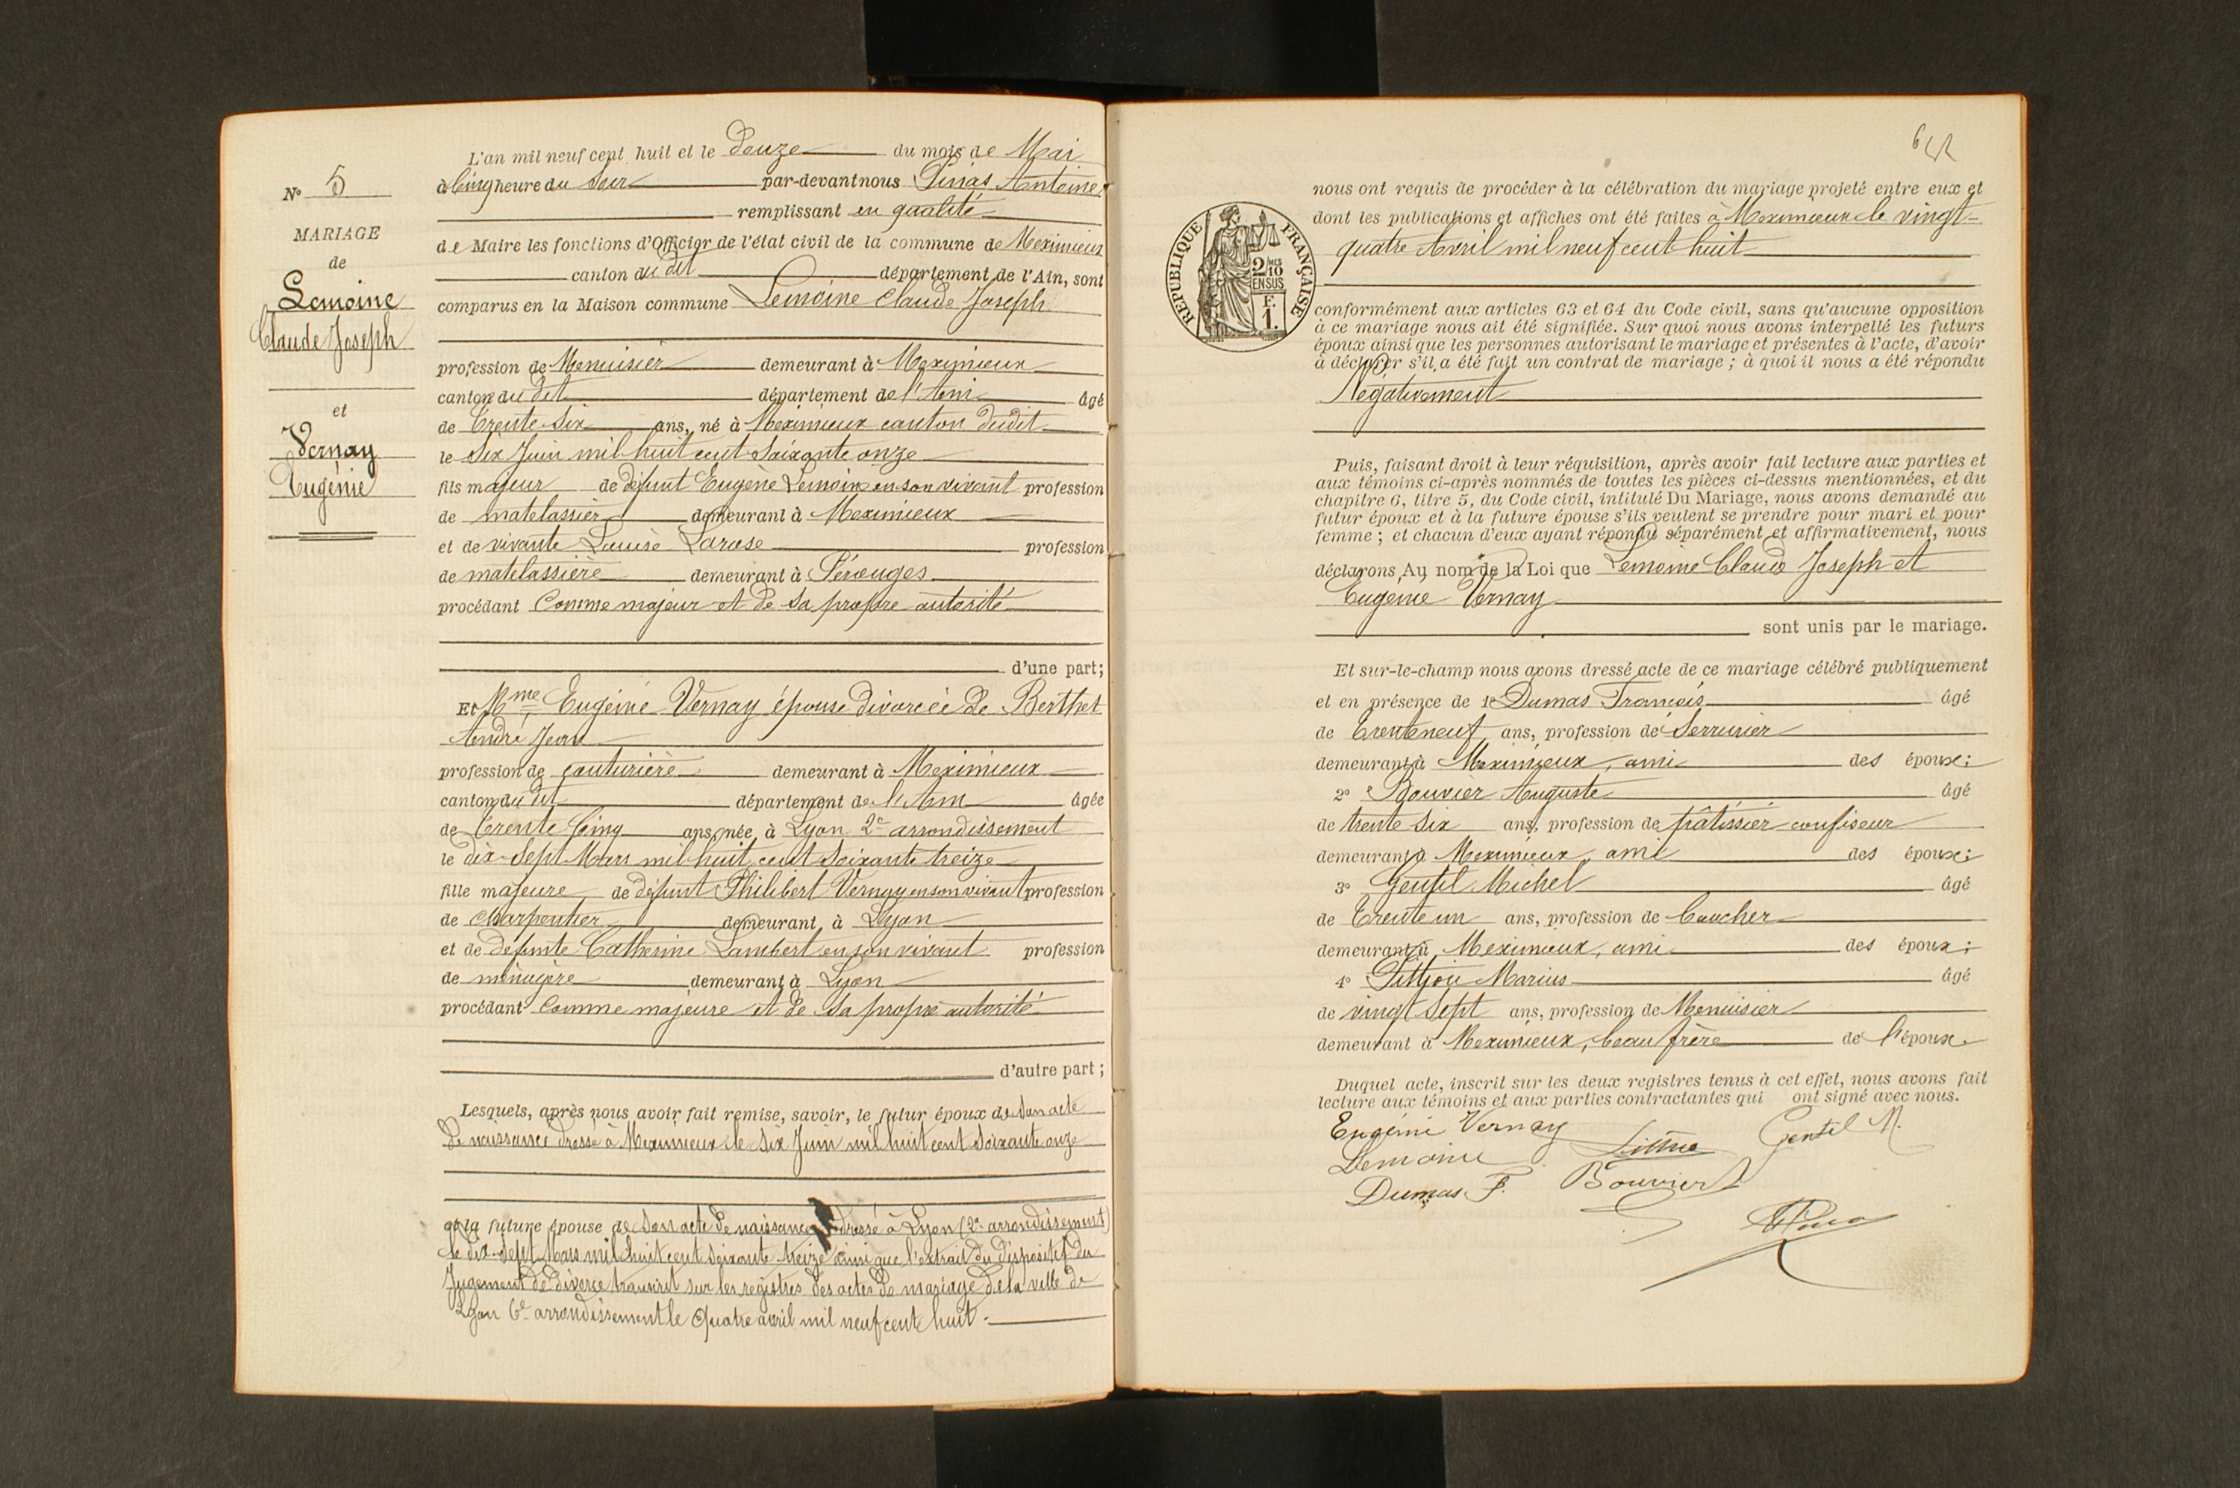 N° 5
MARIAGE
de
Lemoine
Claude Joseph
et
Vernay
Eugénie
L'an mil neuf cent huit et le douze du mois de Mai
à Cinq heure du Soir par-devant nous Pinas Antoine
remplissant en qualité
de Maire les fonctions d'Officier de l'état civil de la commune de Meximieux
canton du dit département de l'Ain, sont
comparus en la Maison commune Lemoine Claude Joseph
profession de Menuisier demeurant à Meximieux
canton du dit département de l'Ain âgé
de Trente Six ans, né à Meximieux canton dudit
le Six Juin mil huit cent Soixante onze
fils majeur de défunt Eugène Lemoine en son vivant profession
de matelassier demeurant à Meximieux
et de vivante Louise Larose profession
de matelassière demeurant à Pérouges
procédant Comme majeur et de sa propre autorité
d'une part;
Et Mme Eugénie Vernay épouse divorcée de Berthet
André Jean
profession de couturière demeurant à Meximieux
canton du dit département de l'Ain âgée
de Trente Cinq ans, née à Lyon 2e arrondissement
le dix-Sept Mars mil huit cent Soixante treize
fille majeure de défunt Philibert Vernay en son vivant profession
de charpentier demeurant à Lyon
et de défunte Catherine Lambert en son vivant profession
de ménagère demeurant à Lyon
procédant Comme majeure et de sa propre autorité
d'autre part;
Lesquels, après nous avoir fait remise, savoir, le futur époux de Son acte
de naissance dressé à Meximieux le Six Juin mil huit cent Soixante onze
et la future épouse de Son acte de naissance dressé à Lyon (2e arrondissement)
le dix-Sept Mars mil huit cent Soixante treize ainsi que l'extrait du dispositif du
Jugement de divorce transcrit sur les registres des actes de mariage de la ville de
Lyon 6e arrondissement le Quatre avril mil neuf cent huit.
nous ont requis de procéder à la célébration du mariage projeté entre eux et
dont les publications et affiches ont été faites à Meximieux le vingt-
quatre Avril mil neuf cent huit
REPUBLIQUE FRANÇAISE
2/10
MES
EN SUS
F.
1.
conformément aux articles 63 et 64 du Code civil, sans qu'aucune opposition
à ce mariage nous ait été signifiée. Sur quoi nous avons interpellé les futurs
époux ainsi que les personnes autorisant le mariage et présentes à l'acte, d'avoir
à déclarer s'il a été fait un contrat de mariage; à quoi il nous a été répondu
Négativement
Puis, faisant droit à leur réquisition, après avoir fait lecture aux parties et
aux témoins ci-après nommés de toutes les pièces ci-dessus mentionnées, et du
chapitre 6, titre 5, du Code civil, intitulé Du Mariage, nous avons demandé au
futur époux et à la future épouse s'ils veulent se prendre pour mari et pour
femme; et chacun d'eux ayant répondu séparément et affirmativement, nous
déclarons Au nom de la Loi que Lemoine Claude Joseph et
Eugénie Vernay
sont unis par le mariage.
Et sur-le-champ nous avons dressé acte de ce mariage célébré publiquement
et en présence de 1° Dumas François âgé
de Trenteneuf ans, profession de Serrurier
demeurant à Meximieux, ami des époux;
2° Bouvier Auguste âgé
de trente Six ans, profession de pâtissier confiseur
demeurant à Meximieux, ami des époux;
3° Gentil Michel âgé
de Trente un ans, profession de Boucher
demeurant à Meximieux, ami des époux;
4° Marius âgé
de vingt Sept ans, profession de Menuisier
demeurant à Meximieux, beau frère de l'époux.
Duquel acte, inscrit sur les deux registres tenus à cet effet, nous avons fait
lecture aux témoins et aux parties contractantes qui ont signé avec nous.
Eugénie Vernay
Gentil M.
Lemoine
Dumas F.
Bouvier